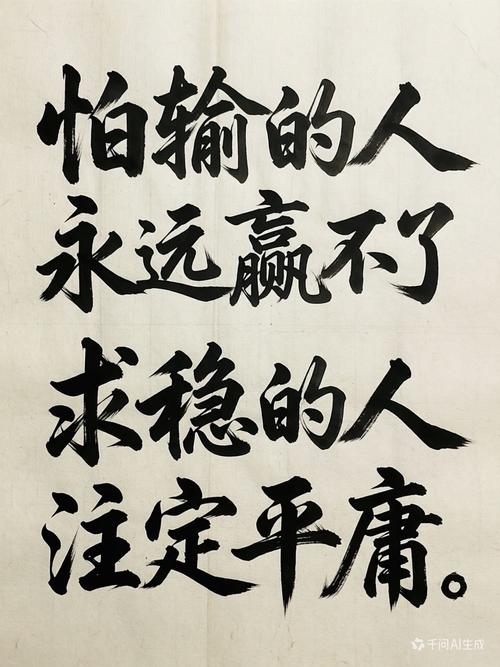 怕输的人
永远赢不了
求稳的人
注定平庸。
千问AI生成